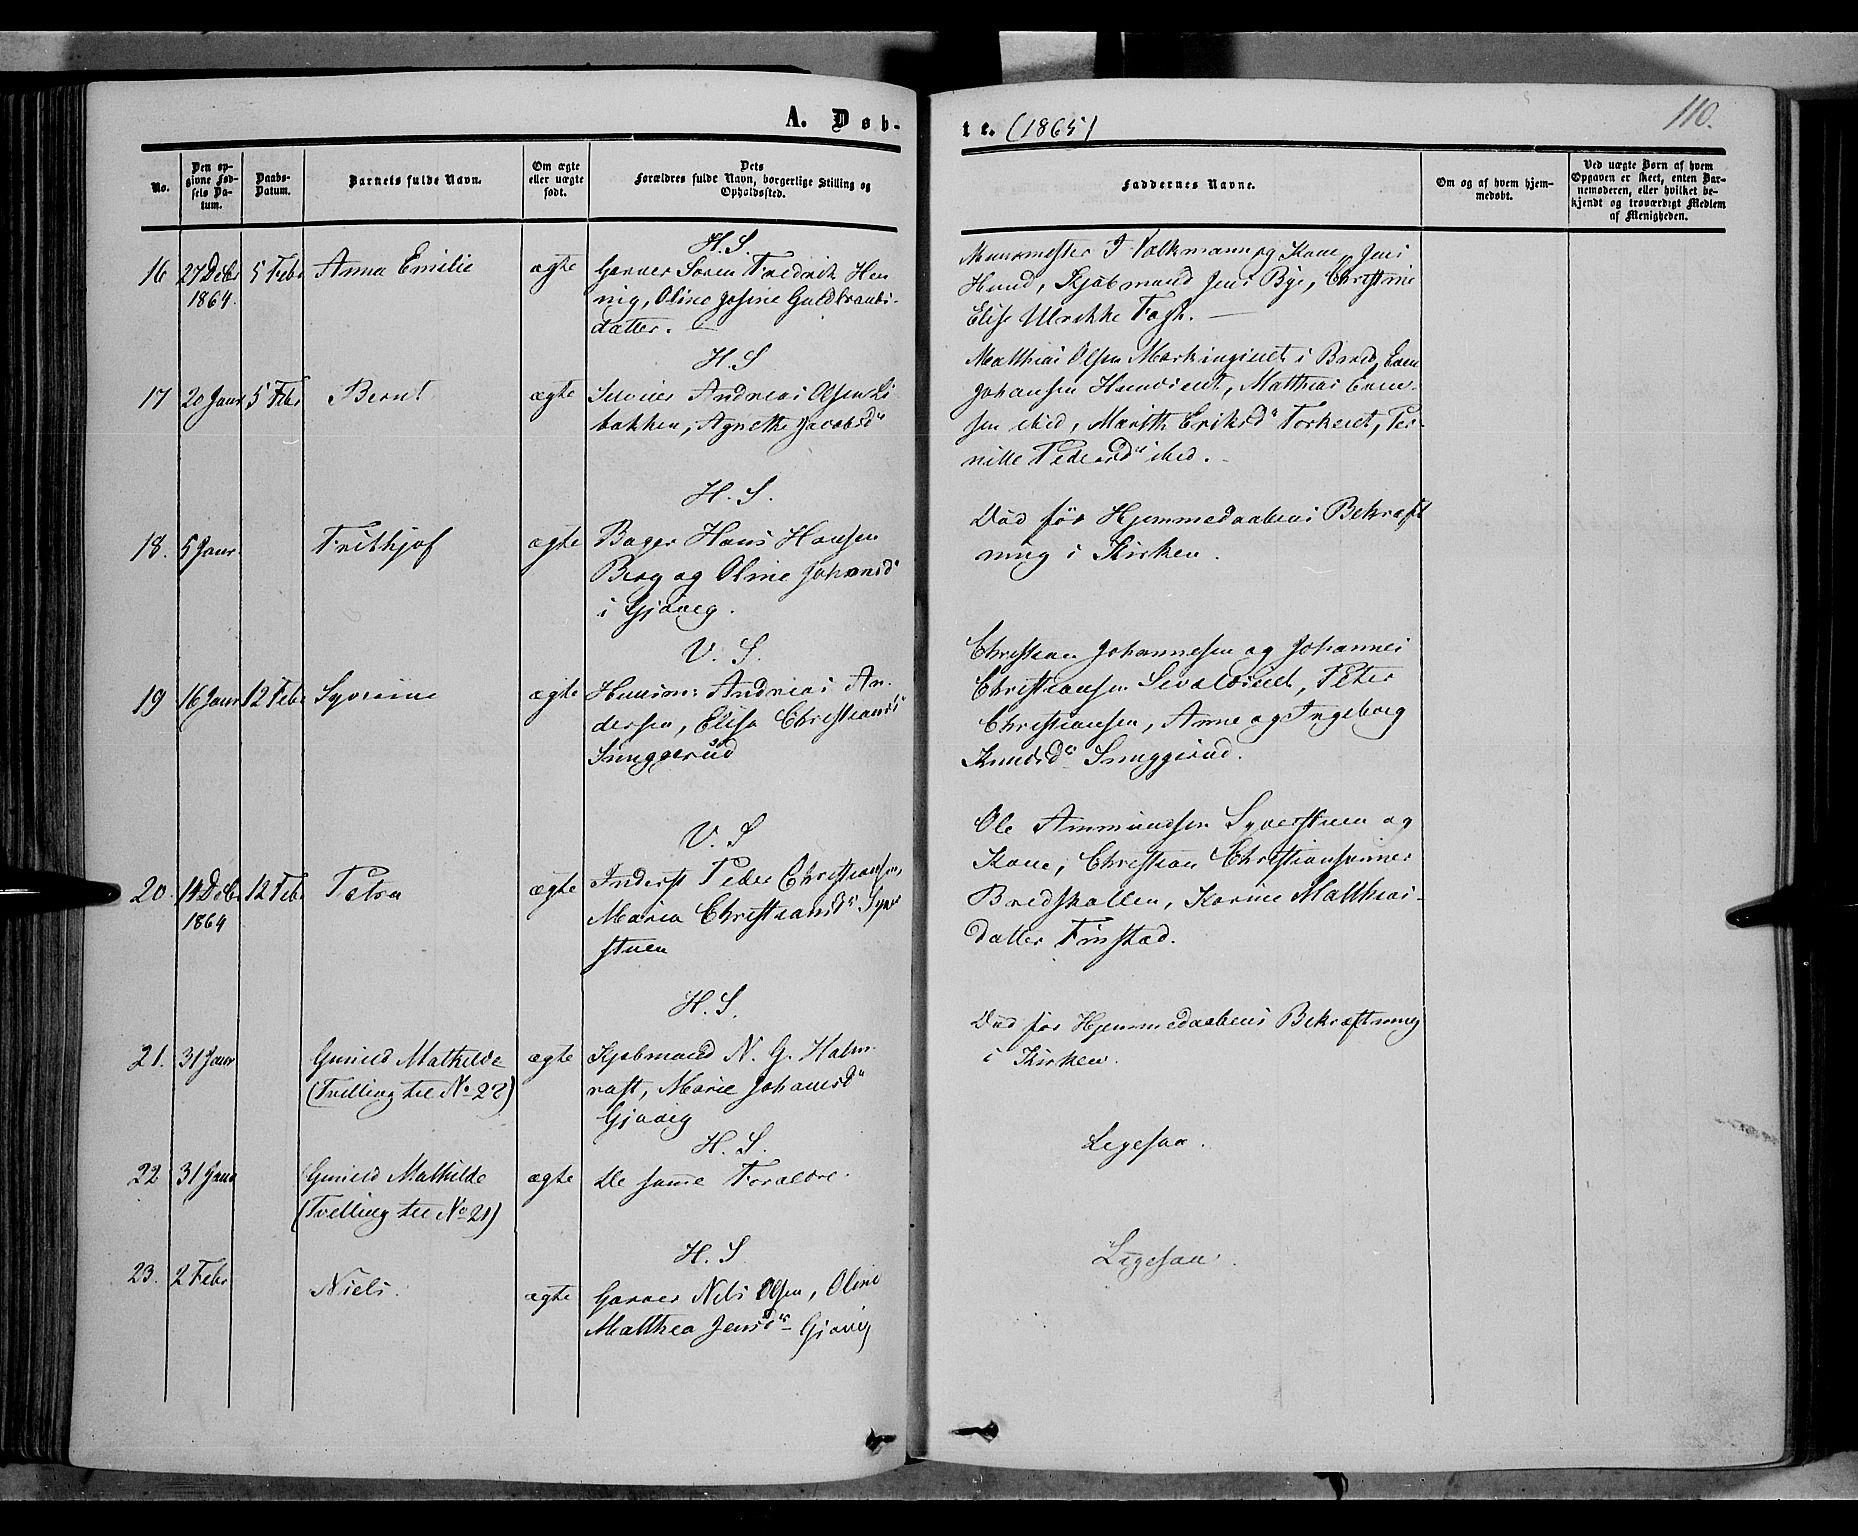 A. Døb-
te. (1865)
110.
No.
Den op-
givne Fød-
sels Da-
tum.
Daabs-
Datum.
Barnets fulde Navn.
Om ægte
eller uægte
født.
Dets
Forældres fulde Navn, borgerlige Stilling og
Opholdssted.
Faddernes Navne.
Om og af hvem hjem-
medøbt.
Ved uægte Børn af hvem
Opgaven er skeet, enten Bar-
nemoderen, eller hvilket be-
kjendt og troværdigt Medlem
af Menigheden.
H. S.
16 27 Decbr 5 Febr Anna Emilie ægte Garver Søren Fredrik Hen-
1864. nig, Oline Josine Guldbrands-
datter.
Muurmester J. Volkmann og Kone, Jens
Hund, Kjøbmand Jens Bye, Christine
Elise Ulrikke Fagh.
H. S
17 20 Janr 5 Febr Bernt ægte Andreas Olsen Li-
bakken, Agnethe Jacobsd
Matthias Olsen i Bred, Even
Johansen, Matthias Even-
sen ibid, Marith Eriksd, Per-
nille Pedersd ibid.
H. S.
18. 5 Janr. Frithjof ægte Bager Hans Hansen
Berg og Oline Johansd
i Gjøvig.
Død før Hjemmedaabens Bekræft
ning i Kirken.
V. S.
19 16 Janr 12 Febr Syverine ægte Huusm: Andreas An-
dersen, Elise Christiansd
Snuggerud
Christian Johannesen og Johannes
Christiansen, Peter
Christiansen, Anne og Ingeborg
Knudsd Snuggerud.
V. S
20. 14 Decbr 12 Febr Petra ægte Inderst Peder Christiansen,
1864 Maria Christiansd Syver
stuen
Ole Ammundsen Syverstuen og
Kone, Christian Christiansen
Bredskallen, Karine Matthias-
datter Finstad.
H. S.
21. 31 Janr Gunild Mathilde ægte Kjøbmand N. G. Halm-
(Tvilling til No 22) rast, Marie Johansd
Gjøvig
Død før Hjemmedaabens Bekræftning
i Kirken.
H. S.
22 31 Janr Gunild Mathilde ægte De samme Forældre.
(Tvilling til No 21)
Ligesaa.
H. S
23. 2 Febr Niels. ægte Garver Nils Olsen, Oline
Matthea Jensd Gjøvig
Ligesaa.